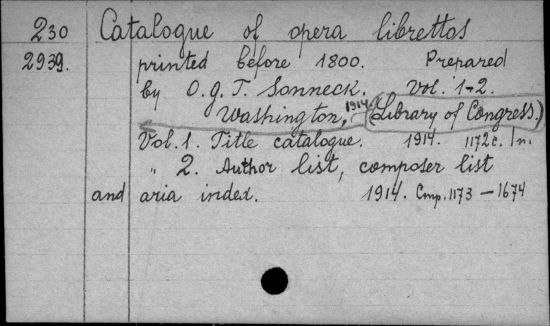 230 Catalogue of opera librettos
2939. printed before 1800. Prepared
by O.G.T. Sonneck. Vol. 1-2.
Washington, 1914. (Library of Congress.)
Vol. 1. Title catalogue. 1914. 1172 c. / n.
" 2. Author list, composer list
and aria index. 1914. Стр. 1173 — 1674